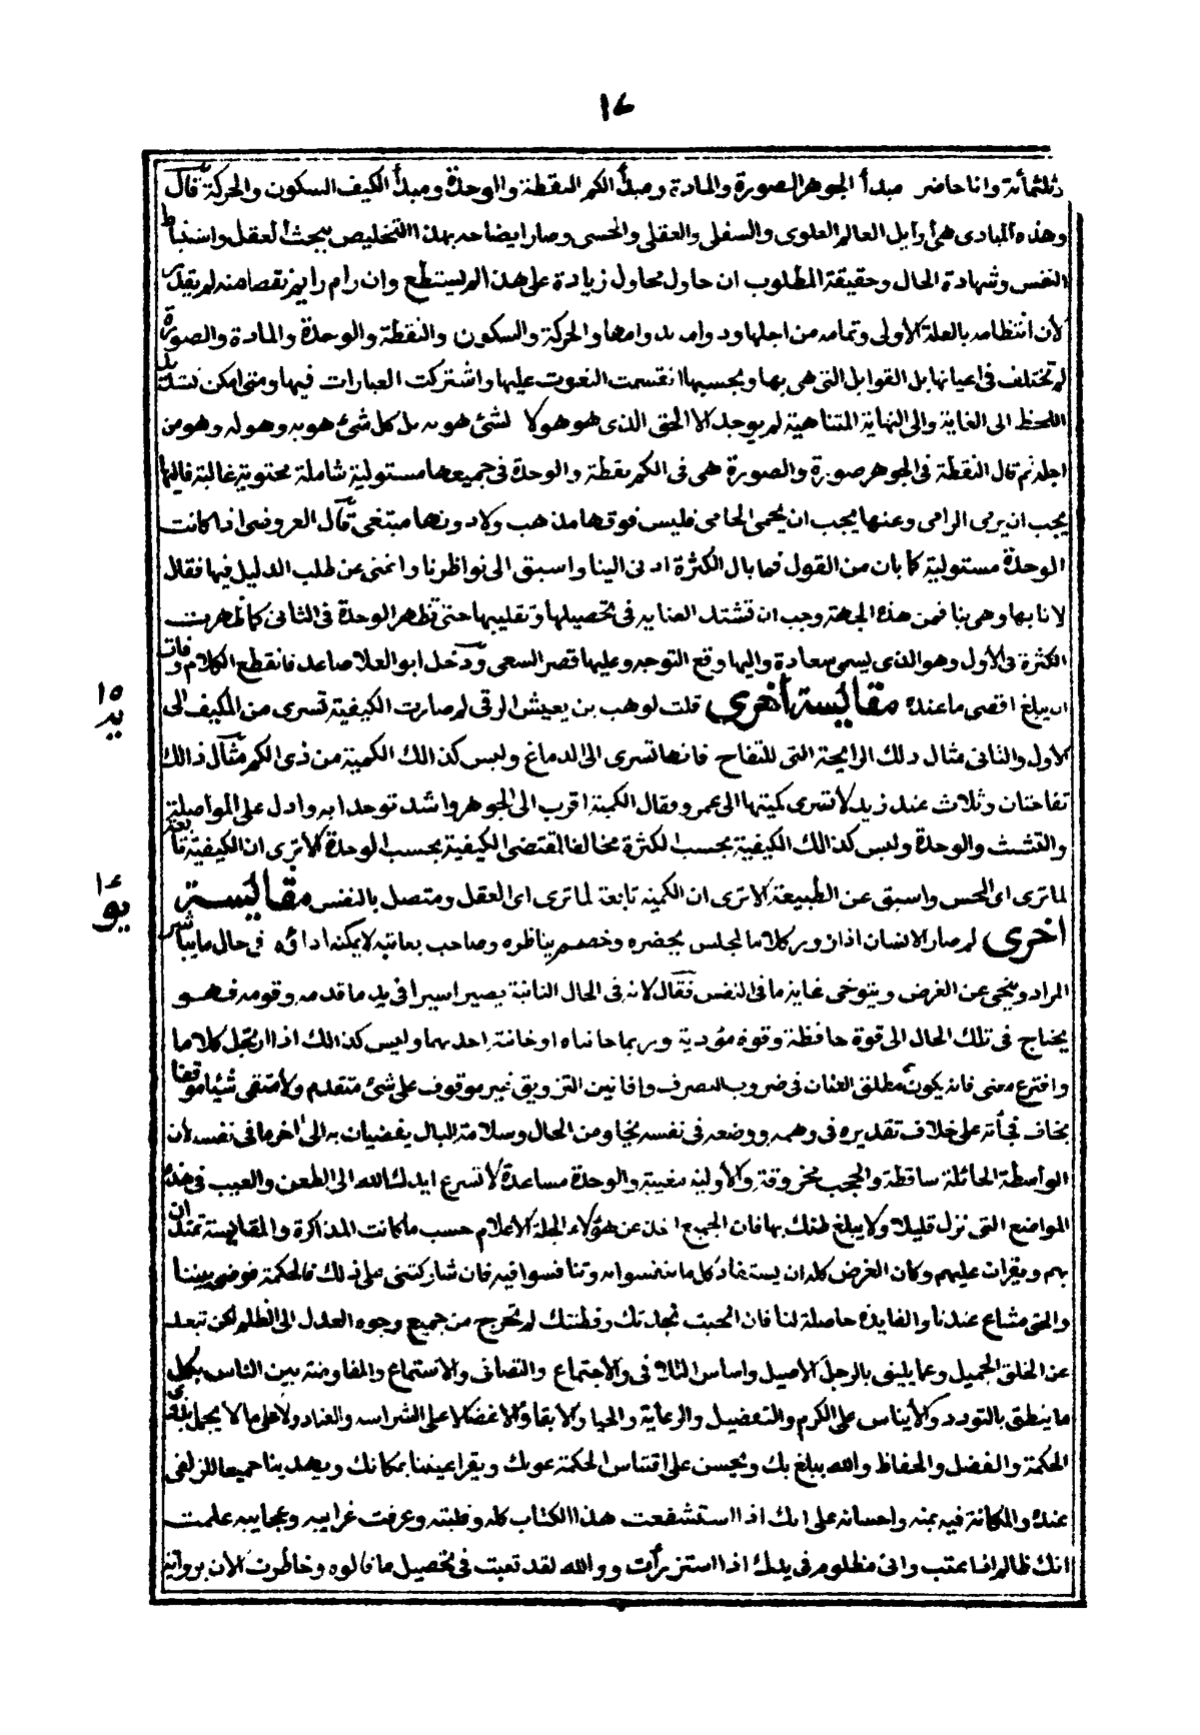 ١٤
وثلثمأئة وانا حاضر مبدأ الجوهر الصورة والمادة ومبدأ الكم النقطة والوحدة ومبدأ الكيف السكون والحركة قال
وهذه المبادى هى أوايل العالم العلوى والسفلى والعقلى والحسى وصار ايضاحه بهذا التخليص ببحث العقل واستنباط
النفس وشهادة الحال وحقيقة المطلوب ان حاول محاول زيادة على هذا لم يستطع وان رام رايم نقصا منه لم يقدر
لأن انتظامه بالعلة الأولى وتمامه من اجلها ودوامه بدوامها والحركة والسكون والنقطة والوحدة والمادة والصورة
لم تختلف فى اعيانها بل القوابل التى هى بها وبحسبها انقسمت النعوت عليها واشتركت العبارات فيها ومتى امكن تسديد
اللحظ الى الغاية والى النهاية المتناهية لم يوجد الا الحق الذى هو هو لا لشئ هو به بل كل شئ هو به وهو له وهو من
اجله ثم قال النقطة فى الجوهر صورة والصورة هى فى الكم نقطة والوحدة فى جميعها مستولية شاملة محتوية غالبة فاليها
يجب ان يرمى الرامى وعنها يجب ان يحمى الحامى فليس فوقها مذهب ولا دونها مبتغى قال العروضى اذا كانت
الوحدة مستولية كما بان من القول فما بال الكثرة ادنى الينا واسبق الى نواظرنا واغنى عن طلب الدليل فيها فقال
لانا بها وهى بنا فمن هذه الجهة وجب ان تشتد العناية فى تحصيلها وتقليبها حتى تظهر الوحدة فى الثانى كما ظهرت
الكثرة فى الأول وهو الذى يسمى سعادة واليها وقع التوجه وعليها قصر السعى ودخل ابو العلا صاعد فانقطع الكلام وفات
ان يبلغ اقصى ما عنده مقايسة أخرى قلت لوهب بن يعيش الرقى لم صارت الكيفية تسرى من المكيف الى
١٥
يد
الاول والثانى مثال ذلك الرايحة التى للتفاح فانها تسرى الى الدماغ وليس كذالك الكمية من ذى الكم مثال ذالك
تفاحتان وثلاث عند زيد لا تسرى كميتها الى عمرو فقال الكمية اقرب الى الجوهر واشد توحدا به وادل على المواصلة
والتشبث والوحدة وليس كذالك الكيفية بحسب الكثرة مخالفا لمقتضى الكيفية بحسب الوحدة الا ترى ان الكيفية تابعة
لما ترى اى الحس واسبق عن الطبيعة الا ترى ان الكمية تابعة لما ترى اى العقل ومتصل بالنفس مقايسة
١٤
أخرى لم صار الانسان اذا زور كلاما لمجلس يحضره وخصم يناظره وصاحب يعاتبه لا يمكنه اداؤه فى حال ما يباشر
المراد وينحى عن الغرض ويتوخى غاية ما فى النفس فقال لانه فى الحال الثانية يصير اسيرا فى يد ما قدمه وقومه فهو
يحتاج فى تلك الحال الى قوة حافظة وقوة مؤدية وربما خانتاه او خانته احديهما وليس كذالك اذا ارتجل كلاما
وافترع معنى فانه يكون مطلق العنان فى ضروب التصرف وافانين التزويق غير موقوف على شئ متقدم ولا متقى شيئا موقفا
يخاف فجأته على خلاف تقديره فى وهمه ووضعه فى نفسه بخا ومن الحال وسلامة البال يفضيان به الى اخر ما فى نفسه لان
الواسطة الحائلة ساقطة والحجب مخروقة والأولية مغيبة والوحدة مساعدة لا تسرع ايدك الله الى الطعن والعيب فى هذه
المواضع التى نزل قليلا ولا يبلغ ظنك بها فان الجميع اخذ عن هؤلاء الجلة الاعلام حسب ما كانت المذاكرة والمقايسة تمتدان
بهم ويقران عليهم وكان الغرض كله ان يستفاد كل ما تنفسوا به وتنافسوا فيه فان شاركتنى على ذلك فالحكمة فوضى بيننا
والحق مشاع عندنا والفايدة حاصلة لنا فان احببت نجدتك وفطنتك لم تخرج من جميع وجوه العدل الى الظلم لكن تبعد
عن الخلق الجميل وعما يليق بالرجل الاصيل واساس التلافى والاجتماع والتصافى والاستماع والمفاوضة بين الناس بكل
ما ينطق بالتودد والأيناس على الكرم والتفضيل والرعاية والحيا والابقا والاغضا لا على الشراسة والعناد ولا على ما لا يجمل بذوى
الحكمة والفضل والحفاظ والله يبلغ بك ويحسن على اقتناس الحكمة عونك ويقر اعيننا بمكانك ويهدينا جميعا للزلفى
عنده والمكانة فيه بمنه واحسانه على انك اذا استشفعت هذا الكتاب كله وفظته وعرفت غرايبه وعجايبه علمت
انك ظالم انا بعتب وانى مظلوم فى يدك اذا استزرأت ووالله لقد تعبت فى تحصيل ما قالوه وخاطرت الان بروايته